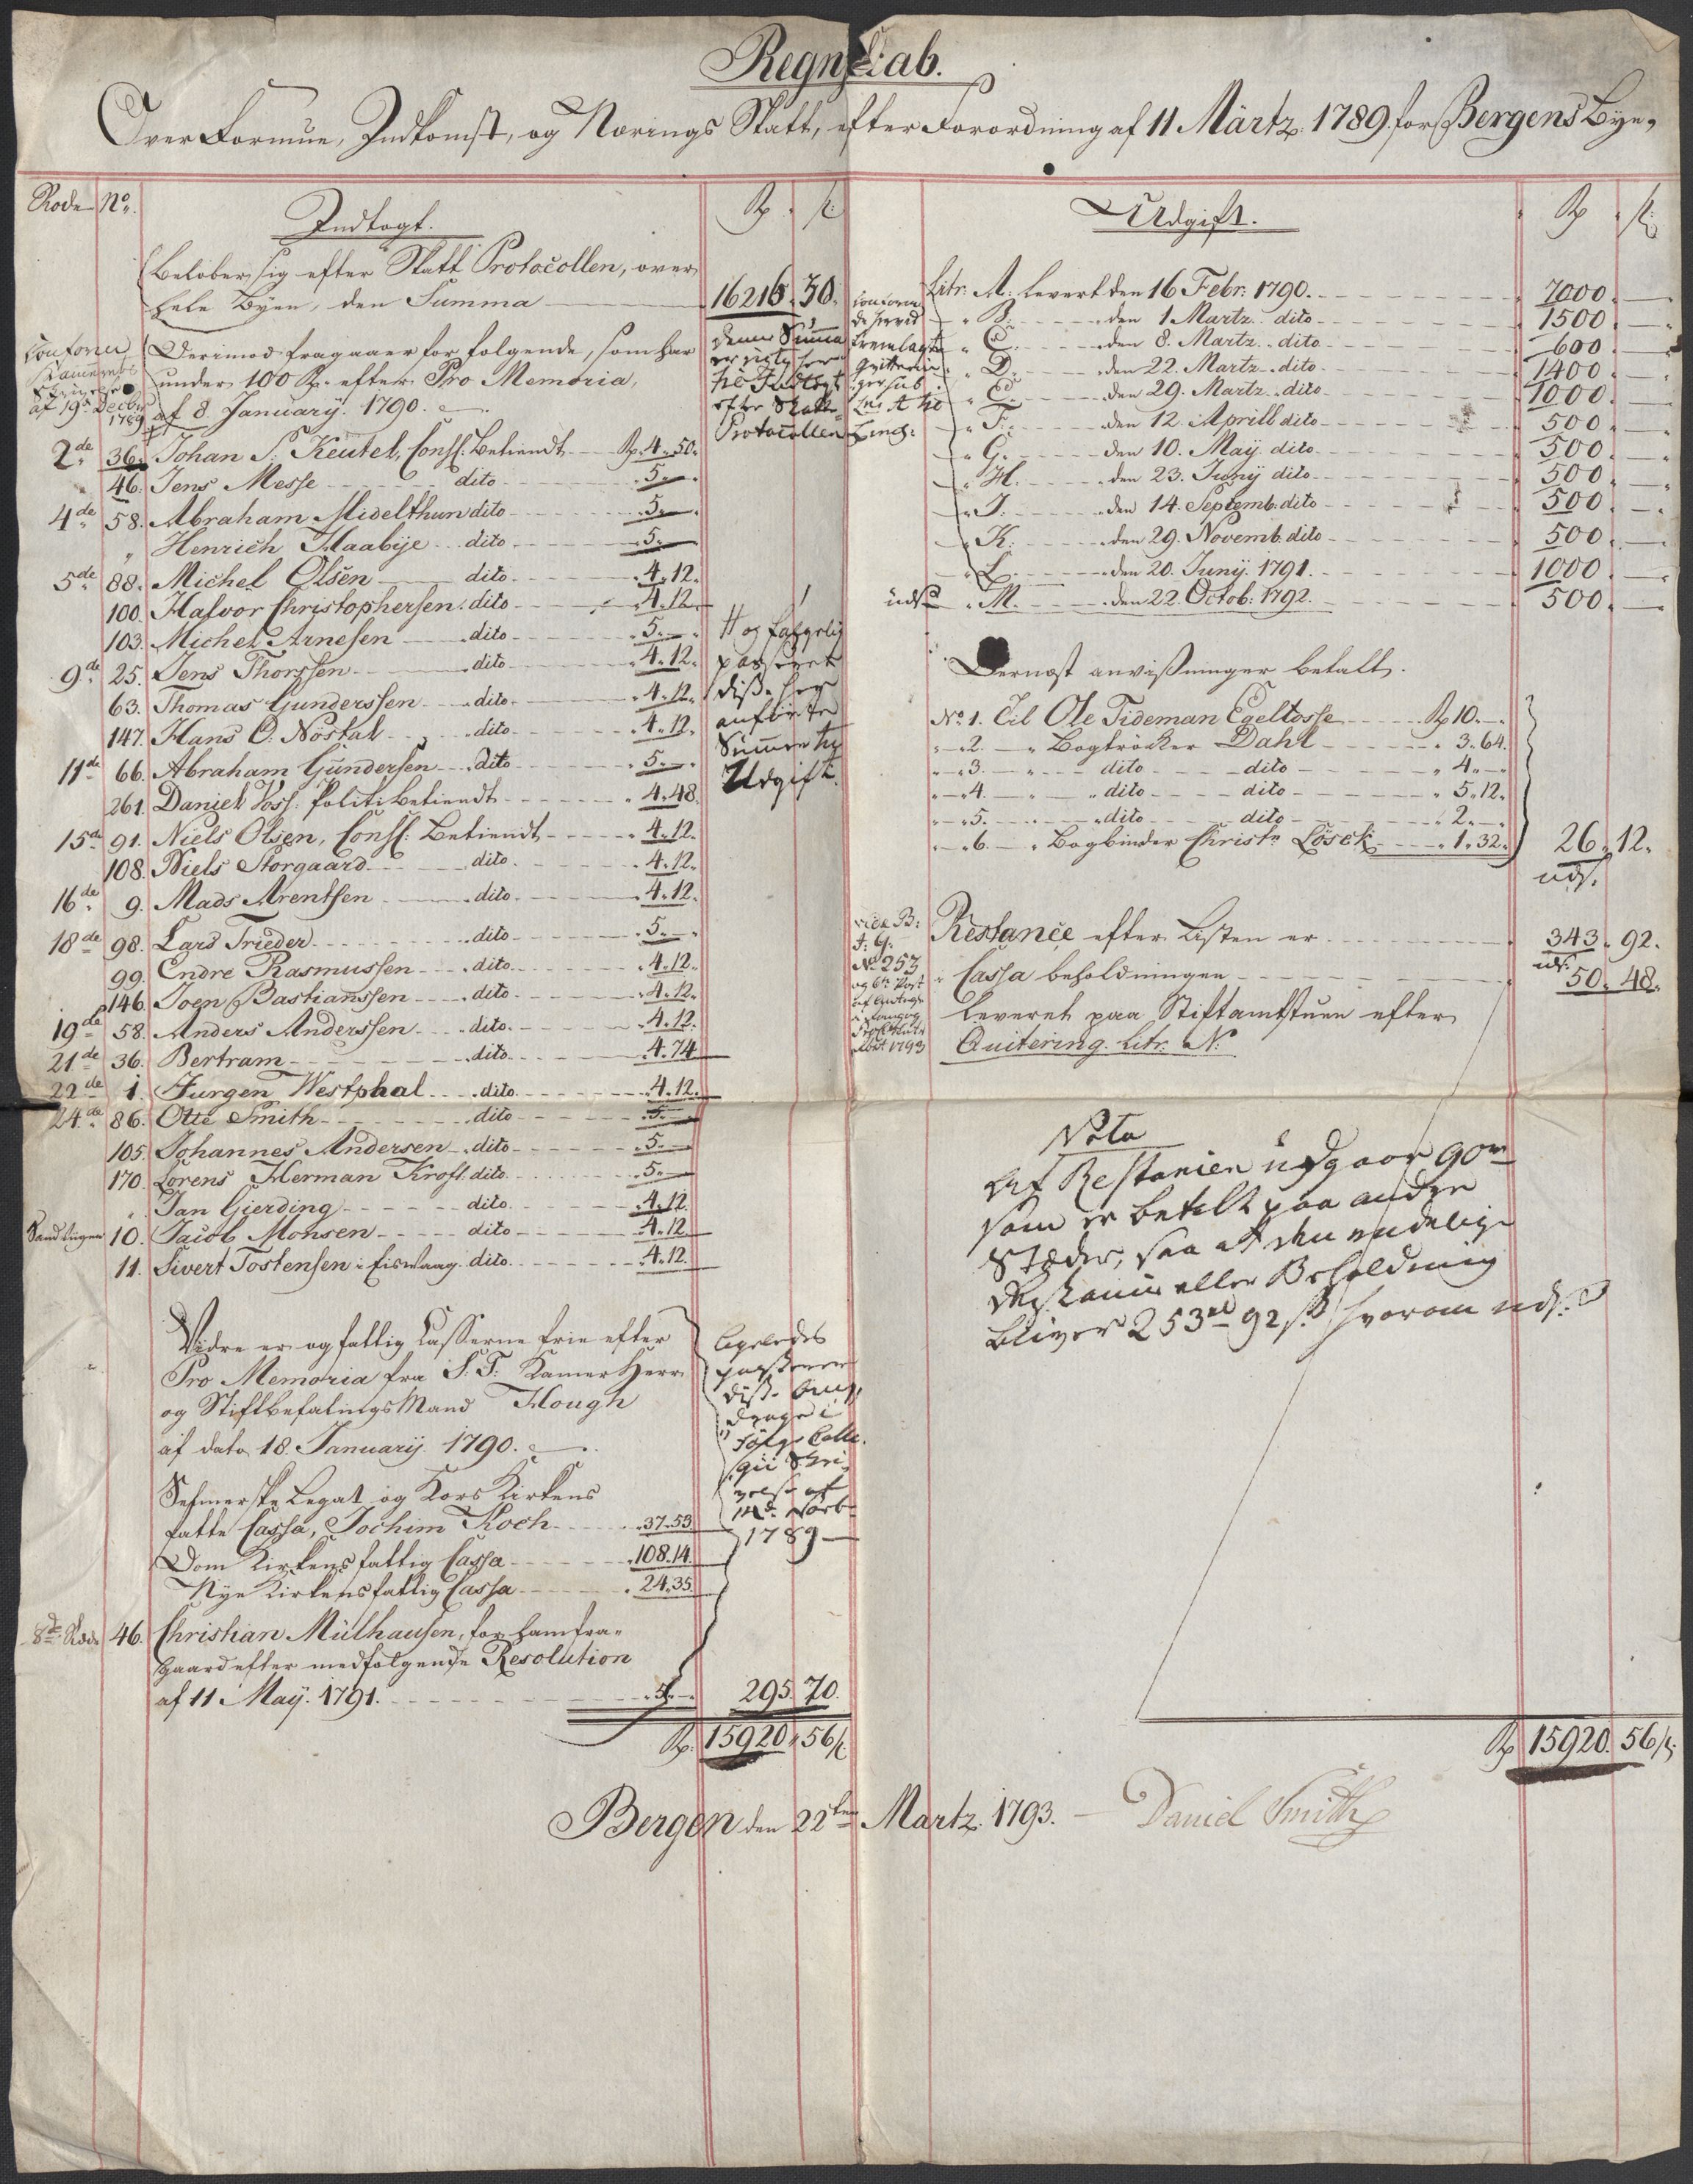 Regnskab.
Over Formue, Indkomst, og Nærings Skatt, efter Forordning af 11 Martz. 1789. for Bergens Bye,
Rode No.
Indtægt.
Rd s:
Beløber sig efter Skatt Protocollen, over
hele Byen, den Summa 16216. 30.
Denne Summa
er rigtig
til Indtægt
efter Skatte
Protocollen
Conform
Skrivelse
af 19de Decbr
1789
Derimod fragaaer for følgende, som har
under 100 Rd. efter Pro Memoria,
af 8 January. 1790.
2de 36. Johan S: Keutel, Cons: Betiendt Rd. 4. 50.
46. Jens Messe dito 5. —
4de 58. Abraham Midelthun dito 5. —
" Henrich Haabije dito 5. —
5de 88. Michel Olsen dito 4. 12.
100. Halvor Christophersen. dito 4. 12.
103. Michel Arnesen dito 5. —
9de 25. Jens Thorssen dito 4. 12.
63. Thomas Gunderssen dito 4. 12.
147. Hans O. Nøstal dito 4. 12.
11de 66. Abraham Gundersen dito 5. —
261. Daniel Voss: Politibetiendt 4. 48.
15de 91. Niels Olsen, Cons: Betiendt 4. 12.
108. Niels Storgaard dito 4. 12.
16de 9. Mads Arentsen dito 4. 12.
18de 98. Lars Trieder dito 5. —
99. Endre Rasmussen dito 4. 12.
146. Joen Bastianssen dito 4. 12.
19de 58. Anders Anderssen dito 4. 12.
21de 36. Bertram dito 4. 74
22de 1. Jurgen Westphal dito 4. 12.
24de 86. Otte Smith dito 5. —
105. Johannes Andersen dito 5. —
170. Lorens Herman Kroft. dito 5. —
" Jan Gierding dito 4. 12.
Sandvigen 10. Jacob Monsen dito 4. 12.
11. Sivert Tostensen i Eiswaag. dito 4. 12.
og følgelig
passeret
disse her
anførte
Summer til
Udgift.
Vidre er og fattig Casserne frie efter
Pro Memoria fra S. T: Kamer Herr
og Stiftbefalings Mand Hough
af dato 18. January. 1790.
Sefmerske Legat og Kors Kirkens
fatte Cassa, Jochim Koch 37. 53.
Dom Kirkens fattig Cassa 108. 14.
Nye Kirkens fattig Cassa 24. 35.
Ligeledes
passerer
disse
i
følge Colle-
gii Skri-
velse af
1789
8de Rode 46. Christian Mülhausen, for ham fra-
gaard efter medfølgende Resolution
af 11 May. 1791. 5. —
295. 70.
Rd. 15920. 56 s
Udgift.
Rd s:
Litr: A. Levert den 16 Febr: 1790. 7000. —
" B. den 1 Martz. dito 1500. —
" C. den 8. Martz. dito 600 —
" D. den 22. Martz. dito 1400. —
" E. den 29. Martz. dito 1000. —
" F. den 12. Aprill dito 500. —
" G. den 10. May. dito 500. —
" H. den 23. Juny dito 500. —
" I. den 14. Septemb. dito 500. —
" K. den 29. Novemb. dito 500. —
" L. den 20. Juny. 1791. 1000. —
" M. den 22. Octob: 1792. 500. —
Dernæst anvisninger betalt.
No. 1. Til Ole Tideman Egeltosse Rd 10. —
" 2. — " Bogtrøcker Dahl 3. 64.
" 3. — " dito dito 4. —
" 4. — " dito dito 5. 12.
" 5. — " dito dito 2. —
" 6. — " Bogbinder Christn Løseck 1. 32.
26. 12.
Restance efter Listen er 343. 92.
Cassa beholdningen 50. 48.
Leveret paa Stiftamtstuen efter
Quitering. Litr. N:
Nota
Af Restancien udgaar 90
som er betalt paa andre
Stæder, saa at den endelige
Restance eller Beholdning
bliver 253 92 s. hvorom
Rd 15920. 56 s.
Bergen den 22ten Martz. 1793. Daniel Smith